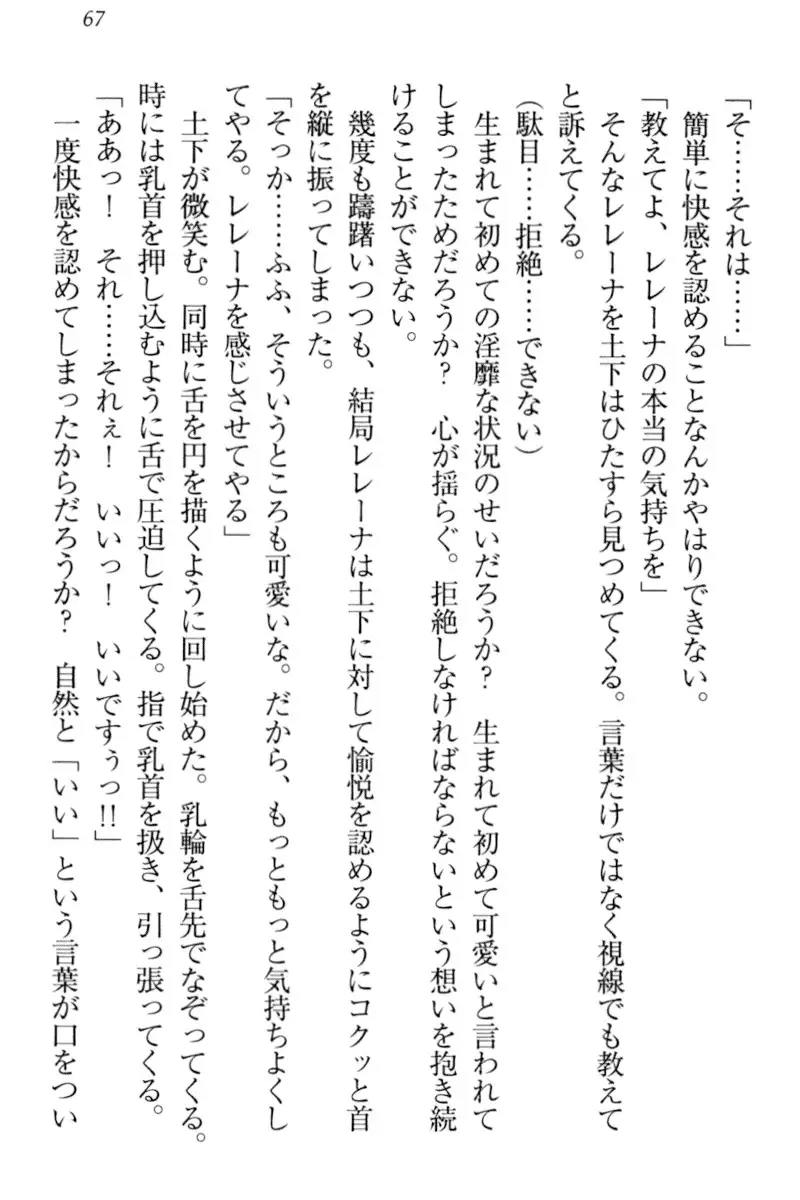 67
「そ……それは……」
簡単に快感を認めることなんかやはりできない。
「教えてよ、レレーナの本当の気持ちを」
そんなレレーナを土下はひたすら見つめてくる。言葉だけではなく視線でも教えて
と訴えてくる。
（駄目……拒絶……できない）
生まれて初めての淫靡な状況のせいだろうか？　生まれて初めて可愛いと言われて
しまったためだろうか？　心が揺らぐ。拒絶しなければならないという想いを抱き続
けることができない。
幾度も躊躇いつつも、結局レレーナは土下に対して愉悦を認めるようにコクッと首
を縦に振ってしまった。
「そっか……ふふ、そういうところも可愛いな。だから、もっともっと気持ちよくし
てやる。レレーナを感じさせてやる」
土下が微笑む。同時に舌を円を描くように回し始めた。乳輪を舌先でなぞってくる。
時には乳首を押し込むように舌で圧迫してくる。指で乳首を扱き、引っ張ってくる。
「ああっ！　それ……それぇ！　いいっ！　いいですぅっ!!」
一度快感を認めてしまったからだろうか？　自然と「いい」という言葉が口をつい